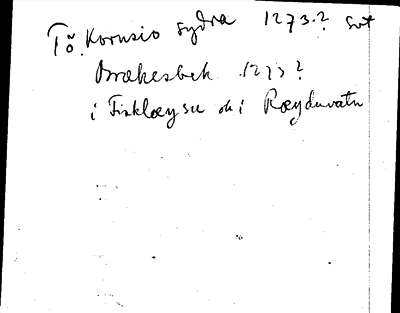 Tö. Kornsio sydra 1273? sot
Brækesbek 1273?
i Fiskløysu ok i Røyduvatn